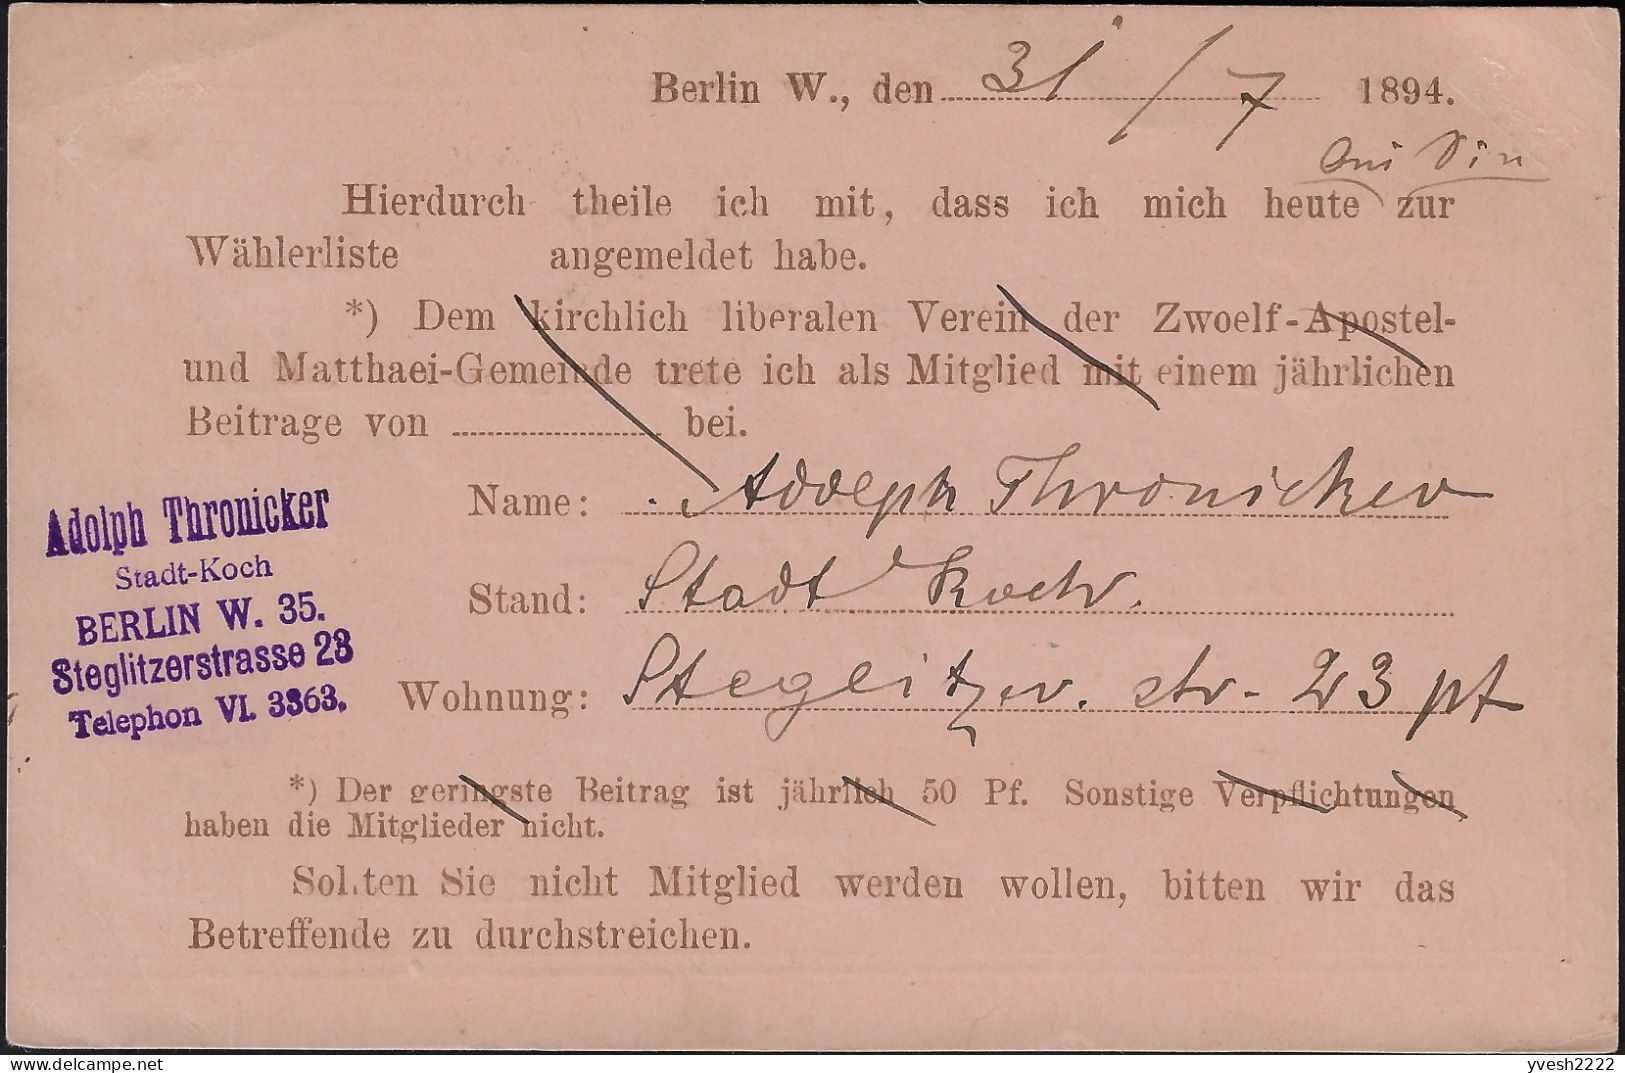 Berlin W., den 31/7 1894.
Hierdurch theile ich mit, dass ich mich heute zur
Wählerliste angemeldet habe.
*) Dem kirchlich liberalen Verein der Zwoelf-Apostel-
und Matthaei-Gemeinde trete ich als Mitglied mit einem jährlichen
Beitrage von bei.
Name: Adolph Thronicker
Stand: Stadt Koch.
Wohnung: Steglitzer. str- 23 pt
Adolph Thronicker
Stadt-Koch
BERLIN W. 35.
Steglitzerstrasse 23
Telephon VI. 3363.
*) Der geringste Beitrag ist jährlich 50 Pf. Sonstige Verpflichtungen
haben die Mitglieder nicht.
Sollten Sie nicht Mitglied werden wollen, bitten wir das
Betreffende zu durchstreichen.
delcampe.net
yvesh2222